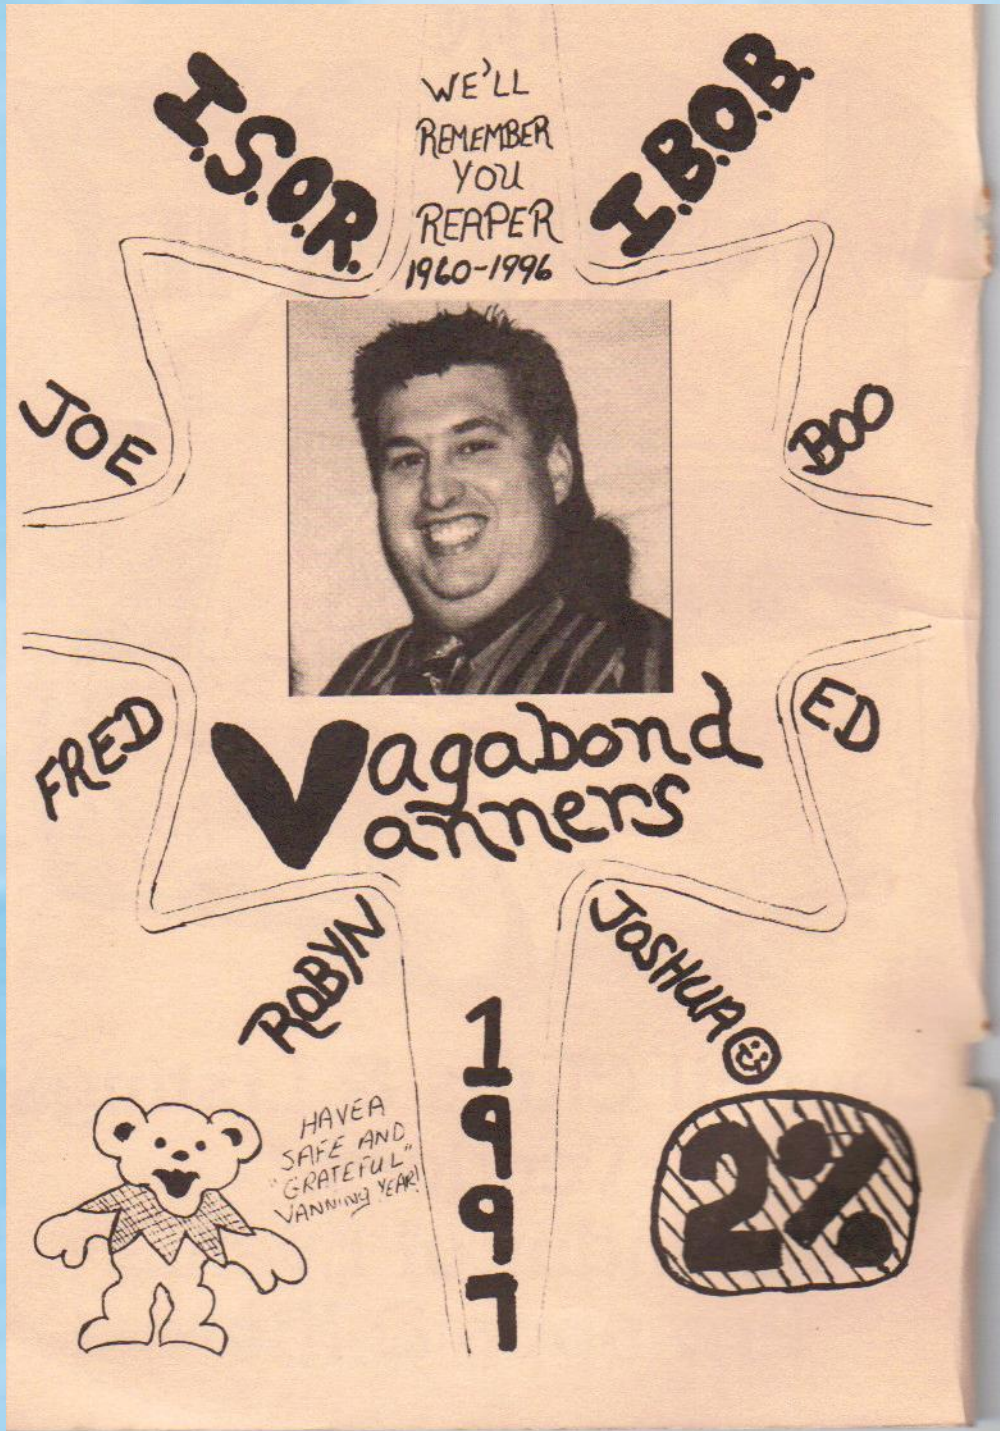 I.S.O.R.
WE'LL
REMEMBER
YOU
REAPER
1960-1996
I.B.O.B.
JOE
BOO
FRED
ED
Vagabond
Vanners
ROBYN
JOSHUA
1997
HAVE A
SAFE AND
"GRATEFUL"
VANNING YEAR!
2%